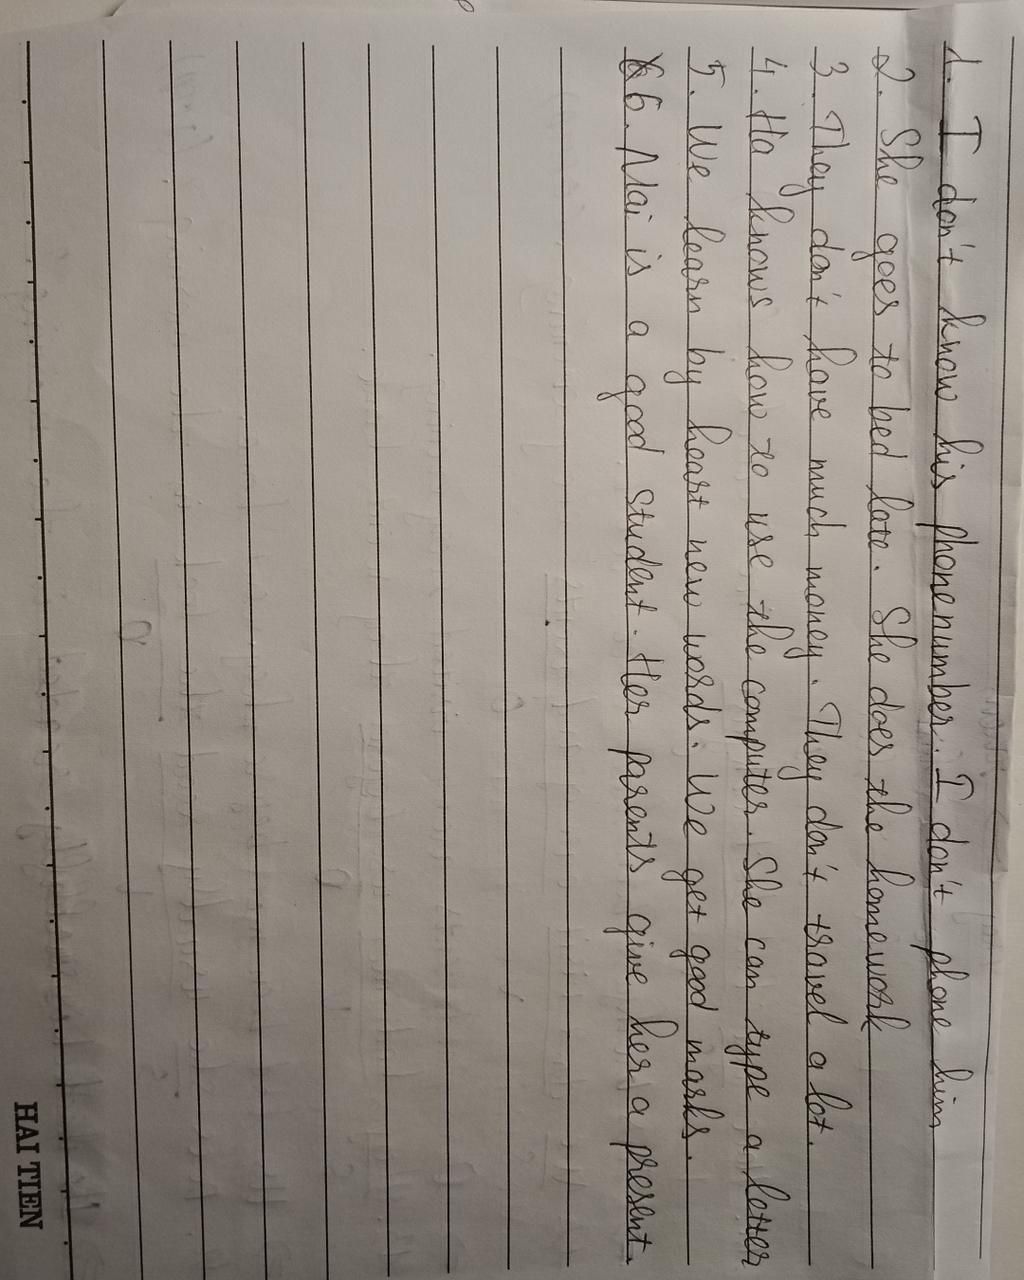 1. I don't know his phonenumber. I don't phone him
2. She goes to bed late. She does the homework
3. They don't have much money. They don't travel a lot.
4. Ha knows how to use the computer. She can type a letter
5. We learn by heart new words. We get good marks.
6. Mai is a good student. Her parents give her a present.
HAI TIEN